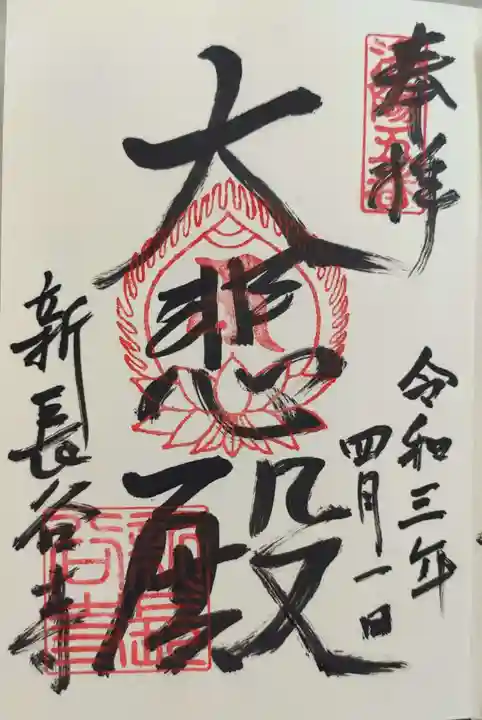 奉拝
洛陽五番
令和三年
四月一日
大悲殿
新長谷寺